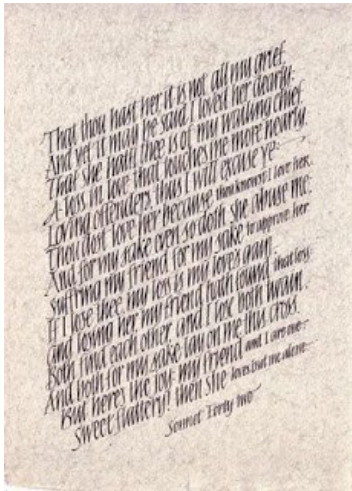 That thou hast her it is not all my grief,
And yet it may be said I loved her dearly;
That she hath thee is of my wailing chief,
A loss in love that touches me more nearly.
Loving offenders thus I will excuse ye:
Thou dost love her because thou knowest I love her,
And for my sake even so doth she abuse me,
Suffring my friend for my sake to approve her
If I lose thee, my loss is my love's gain,
And losing her my friend hath found that loss:
Both find each other, and I lose both twain,
And both for my sake lay on me this cross
But here's the joy: my friend and I are one:
Sweet flattery! then she loves but me alone
Sonnet Forty Two